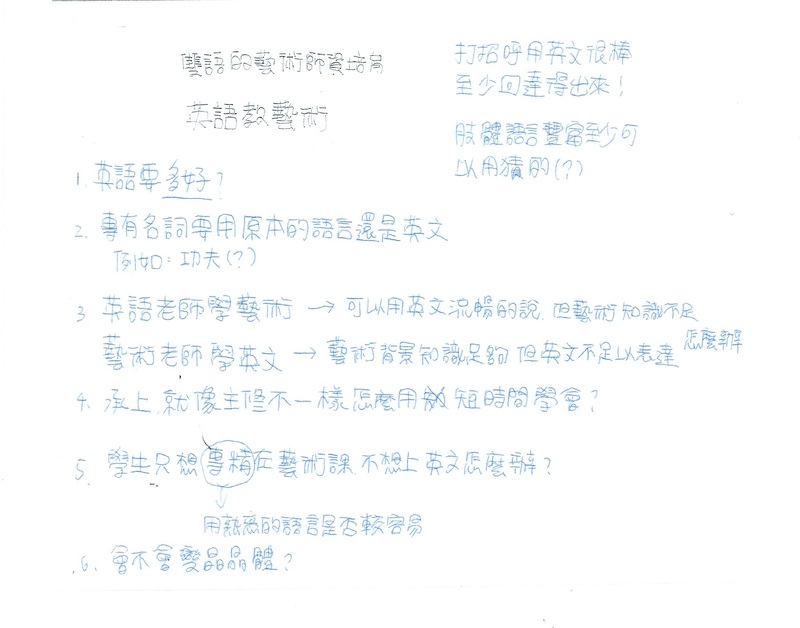 雙語的藝術師資培育
英語教藝術
打招呼用英文很棒
至少回達得出來！
肢體語言豐富至少可
以用猜的(?)
1. 英語要多好？
2. 專有名詞要用原本的語言還是英文
例如：功夫(?)
3 英語老師學藝術 → 可以用英文流暢的說，但藝術知識不足
藝術老師學英文 → 藝術背景知識足夠 但英文不足以表達
怎麼辦
4. 承上，就像主修不一樣，怎麼用 短時間學會？
5. 學生只想專精在藝術課，不想上英文怎麼辦？
用熟悉的語言是否較容易
6、會不會變晶晶體？